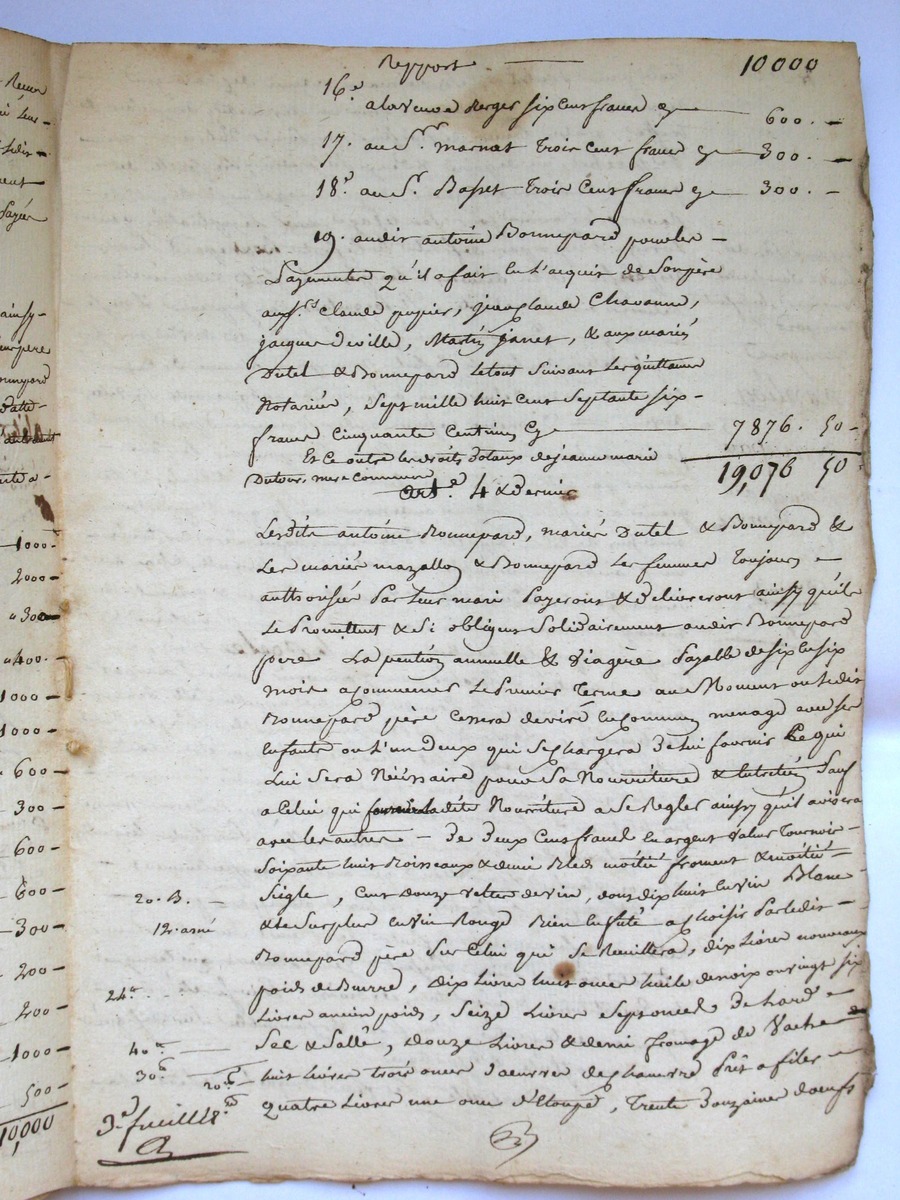 Report — 10000
16.e a la veuve Berger six cent francs cy — 600. —
17. au Sr. marnat trois cent francs cy — 300. —
18.e au Sr. Basset trois cent francs cy — 300. —
19. audit antoine Bonnepard pour les
payements qu'il a fait en l'acquit de son père
aux Srs claude papier, jean claude Chavanne,
jacques deville, Martin janet, & aux mariés
Dutel & Bonnepard le tout suivant les quittances
Notariées, sept mille huit cent septante six
francs cinquante centimes cy — 7876. 50 —
Et ce outre les droits dotaux de jeanne marie
Dutour, mere commune
19,076 50
art.e 4 & Dernier
Lesdits antoine Bonnepard, mariés Dutel & Bonnepard &
les mariés mazallon & Bonnepard les femmes toujours
authorisées par leur mari payeront & delivreront ainsy qu'ils
le Promettent & s'i obligent solidairement audit Bonnepard
pere La pention annuelle & viagère payable de six en six
mois a commencer le Premier terme au Moment ou ledit
Bonnepard père cessera de vivre en commun menage avec ses
enfants ou l'un d'eux qui se chargera de lui fournir ce qui
lui sera Nécessaire pour sa Nourriture & entretien sauf
a celui qui fournira ladite Nourriture a se Regler ainsy qu'il avisera
avec les autres — De Deux Cent francs en argent valeur Tournois
soixante huit Boisseaux & demi Bled moitié froment & moitié
Siègle, cent douze veltes de vin, dont dix huit en vin Blanc
20. B.
12. asné
& le surplus en vin Rouge Bien enfuté a choisir par ledit
Bonnepard père sur celui qui se Reuillera, dix Livres nouveaux
poids de Beurre, dix Livres huit onces huile de noix ou vingt six
24.
Livres ancien poids, seize Livres sept onces de Lard
Sec & sallé, douze Livres & demi fromage de Vache
40.
huit Livres trois onces d'oeuvres de chanvre Prêt a filer
30.
20.
quatre Livres une once d'Etoupe, Trente Douzaines d'oeufs
3.e feuillet
1000
2000
300
400.
1000
1000
600
300
600
600
300
200
200
1000
500
10,000